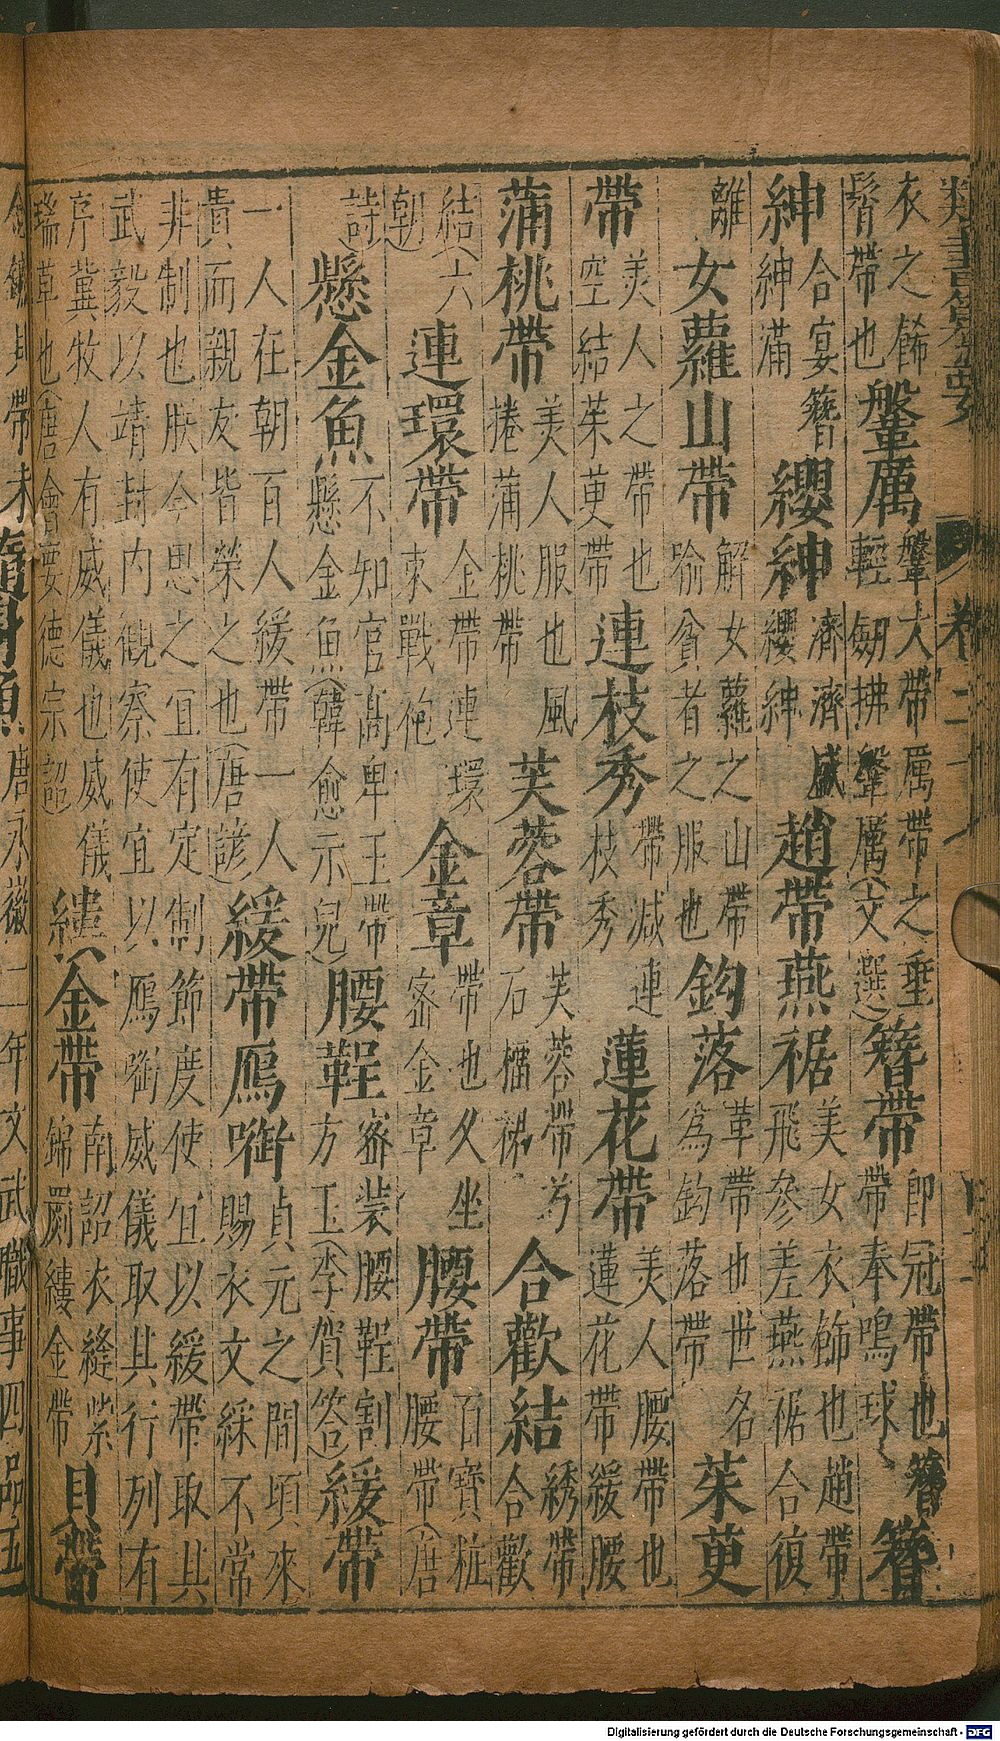 類書纂要 卷二十八
衣之餙髻帶也鞶厲鞶大帶厲帶之垂輕劒拂鞶厲(文選)簪帶即冠帶也簪帶奉鳴球簪
紳合宴簪紳紳滿纓紳濟濟盛纓紳趙帶燕裾美女衣餙也趙帶飛參差燕裾合復
離女蘿山帶解女蘿之山帶踰貧者之服也鈎落革帶也世名為鈎落帶茱萸
帶美人之帶也空結茱萸帶連枝秀帶減連枝秀蓮花帶美人腰帶也蓮花帶緩腰
蒲桃帶美人服也風捲蒲桃帶芙蓉帶芙蓉帶兮石榴裙合歡結綉帶合歡
結(六朝連環帶金帶連環束戰袍金章帶也久坐密金章腰帶百寶粧腰帶(唐
詩)懸金魚不知官高卑玉帶懸金魚(韓愈示兒)腰鞓密装腰鞓割方玉(李賀答)緩帶
一人在朝百人緩帶一人貴而親友皆榮之也(唐諺)緩帶鴈啣貞元之間頃來賜衣文綵不常
非制也朕今思之宜有定制節度使宜以緩帶取其武毅以靖封内觀察使宜以鴈啣威儀取其行列有
序冀牧人有威儀也威儀瑞草也(唐會要德宗詔)縷金帶南詔衣縫紫錦罽縷金帶貝帶
帶未隨身魚唐永徽二年文武職事四品五
Digitalisierung gefördert durch die Deutsche Forschungsgemeinschaft - DFG